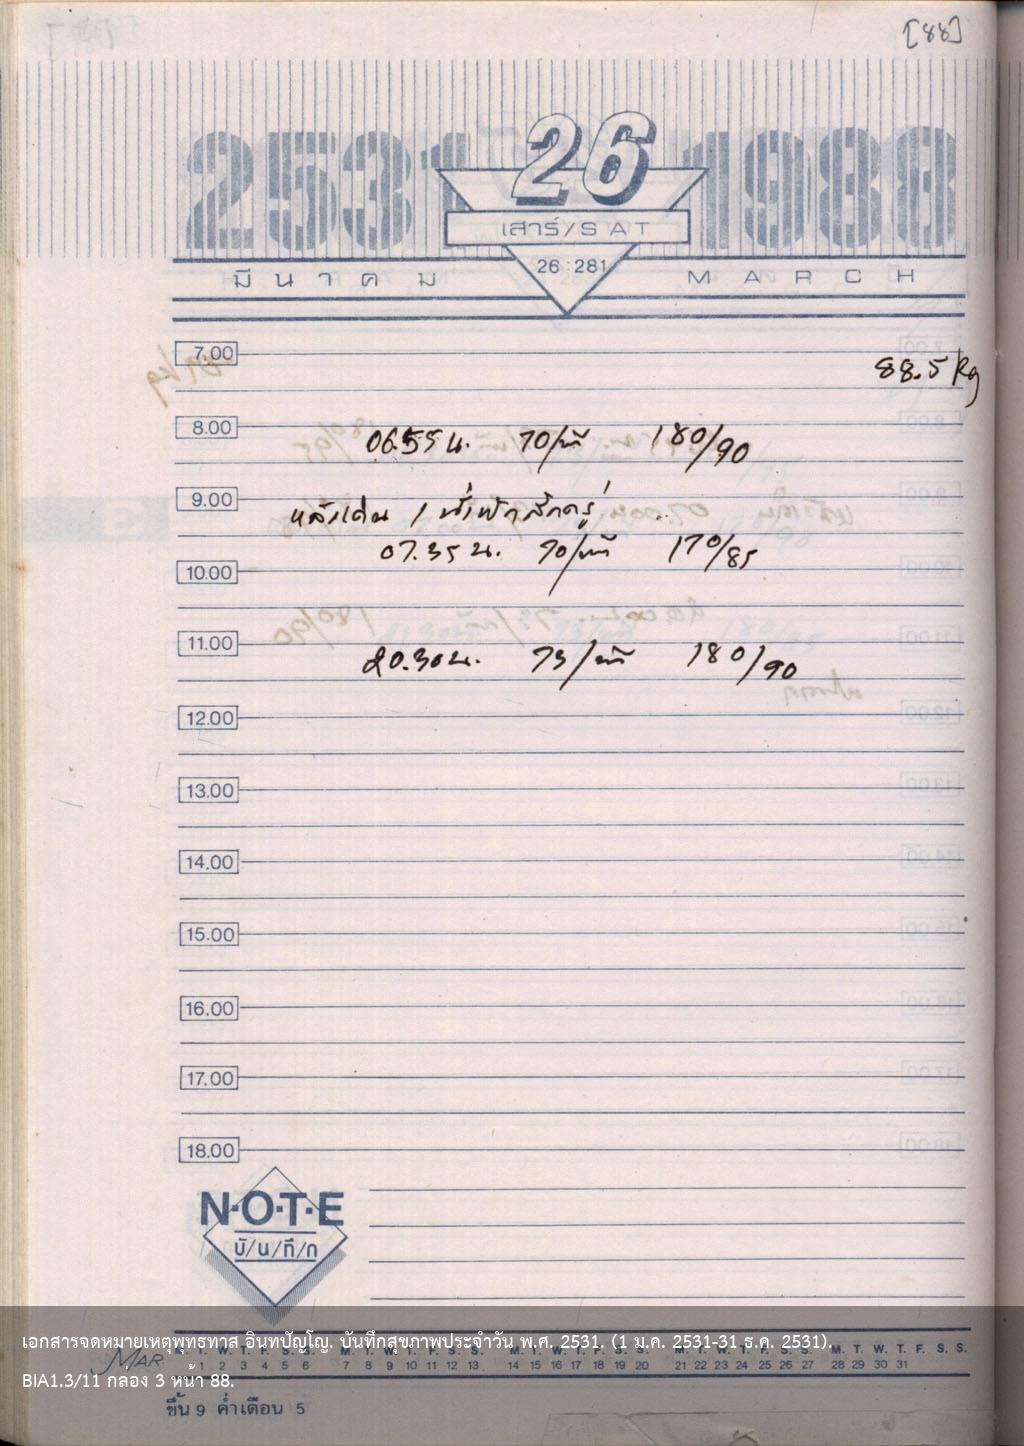 [88]
2531 26 1988
เสาร์/SAT
มีนาคม 26:281 MARCH
7.00
88.5 kg
8.00
06.55 น. 70/นาที 180/90
9.00
หลังเดิน / นั่งพักสักครู่
07.35 น. 70/นาที 170/85
10.00
11.00
20.30 น. 73/นาที 180/90
12.00
13.00
14.00
15.00
16.00
17.00
18.00
N·O·T·E
บั/น/ทึ/ก
เอกสารจดหมายเหตุพุทธทาส อินทปัญโญ. บันทึกสุขภาพประจำวัน พ.ศ. 2531. (1 ม.ค. 2531-31 ธ.ค. 2531).
MAR. M. T. W. T. F. S. S. M. T. W. T. F. S. S. M. T. W. T. F. S. S. M. T. W. T. F. S. S. M. T. W. T. F. S. S.
1 2 3 4 5 6 7 8 9 10 11 12 13 14 15 16 17 18 19 20 21 22 23 24 25 26 27 28 29 30 31
BIA1.3/11 กล่อง 3 หน้า 88.
ขึ้น 9 ค่ำเดือน 5